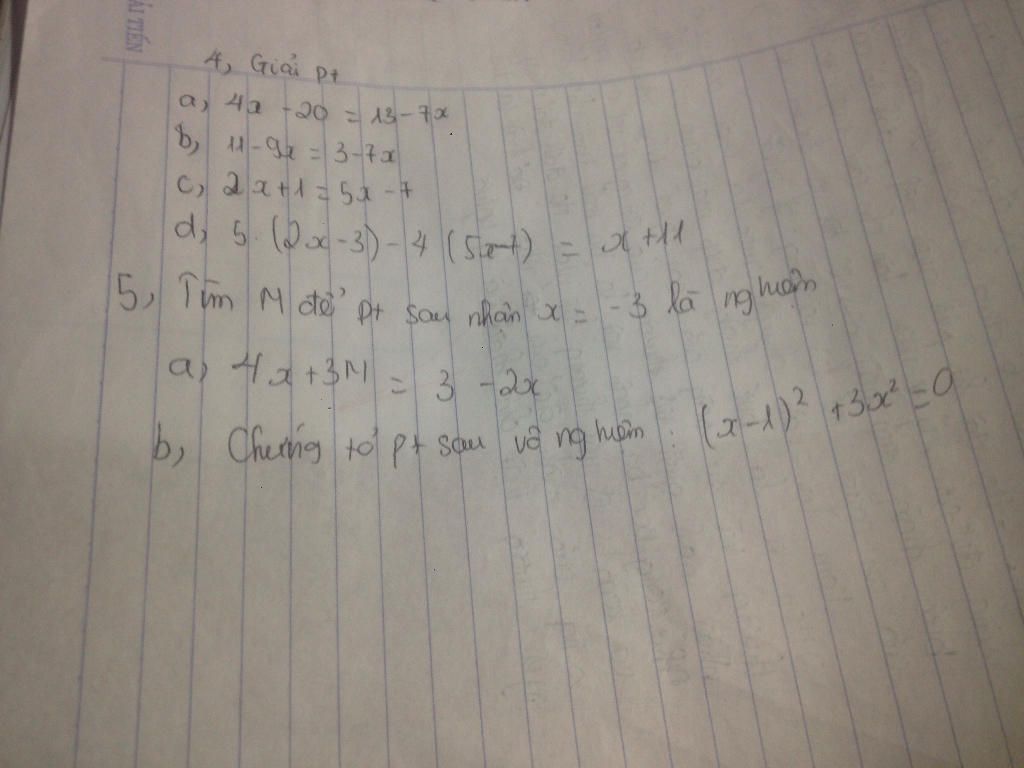 ẢI TIẾN
4, Giải pt
a, 4x - 20 = 13 - 7x
b, 11 - 9x = 3 - 7x
c, 2x + 1 = 5x - 7
d, 5. (2x - 3) - 4 (5x - 7) = x + 11
5, Tìm M để pt sau nhận x = -3 là nghiệm
a, 4x + 3M = 3 - 2x
b, Chứng tỏ pt sau vô nghiệm : (x - 1)² + 3x² = 0